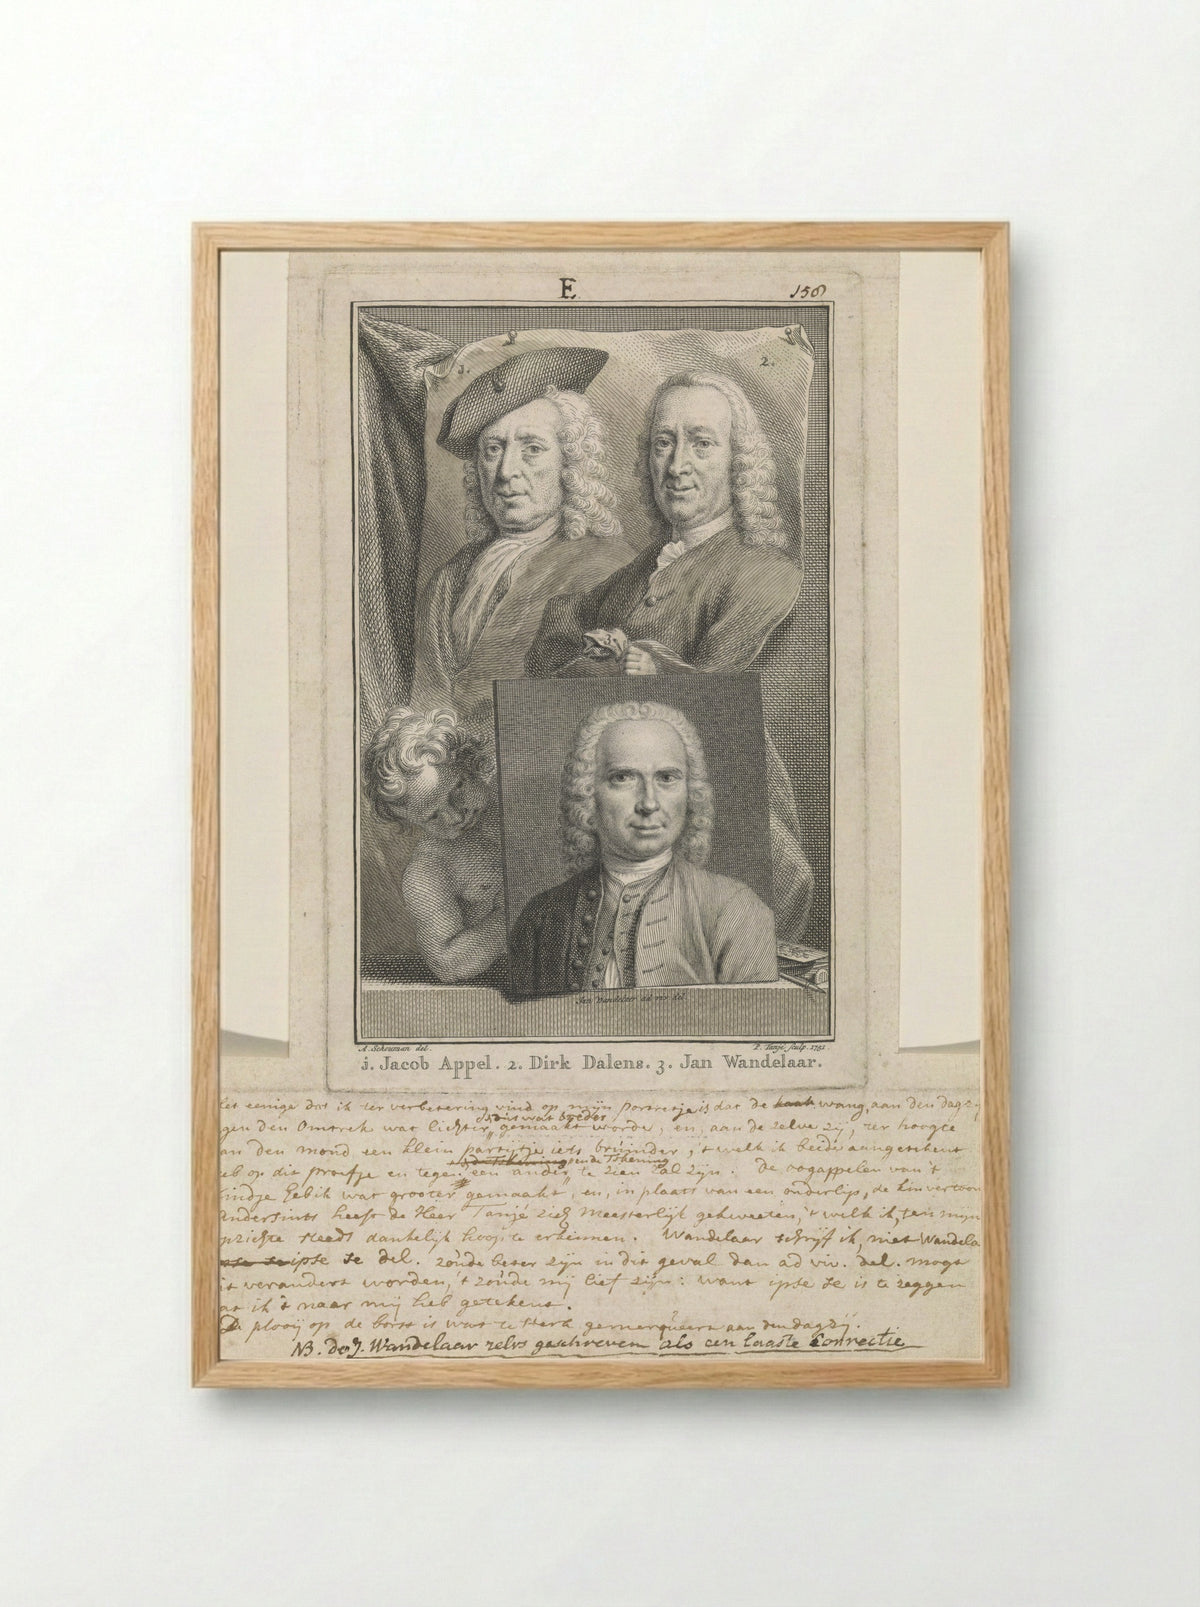 E
156
1.
2.
3.
Jan Wandelaar ad viv. del.
A. Schouman del.
P. Tanjé sculp. 1751
j. Jacob Appel. 2. Dirk Dalens. 3. Jan Wandelaar.
het eenige dat ik ter verbetering vind op mijn portretje is dat de kaak wang, aan den dag-
gen den Omtrek wat lichter gemaakt worde, en, aan de zelve zij, ter hoogte
dit wat breeder
an den mond een klein partijtje iets bruinder, 't welk ik beide aangetekent
eb op dit proefje en tegen een ander te zien zal zijn: de oogappelen van 't
indje heb ik wat grooter gemaakt, en, in plaats van een onderlip, de kin vertoon
andersints heeft de Heer Tanjé zich meesterlijk gekweeten, 't welk ik, ten mijn
opzichte steeds dankelijk hoop te erkennen. Wandelaar schrijf ik, niet Wandela
ipse se del. zoude beter zijn in dit geval dan ad viv. del. mogt
it verandert worden, 't zoude mij lief zijn: want ipse se is te zeggen
at ik 't naar mij heb getekent.
De plooij op de borst is wat te sterk aan den dagzij.
NB. do J. Wandelaar zelvs geschreven als een laatste Correctie